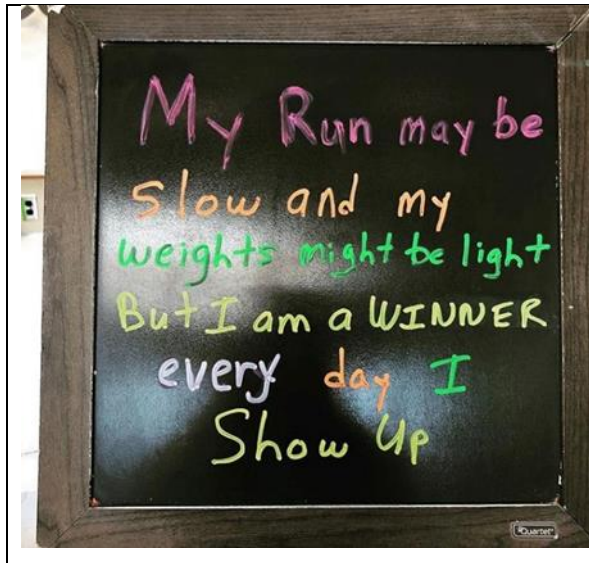 My Run may be
slow and my
weights might be light
But I am a WINNER
every day I
Show Up
Quartet